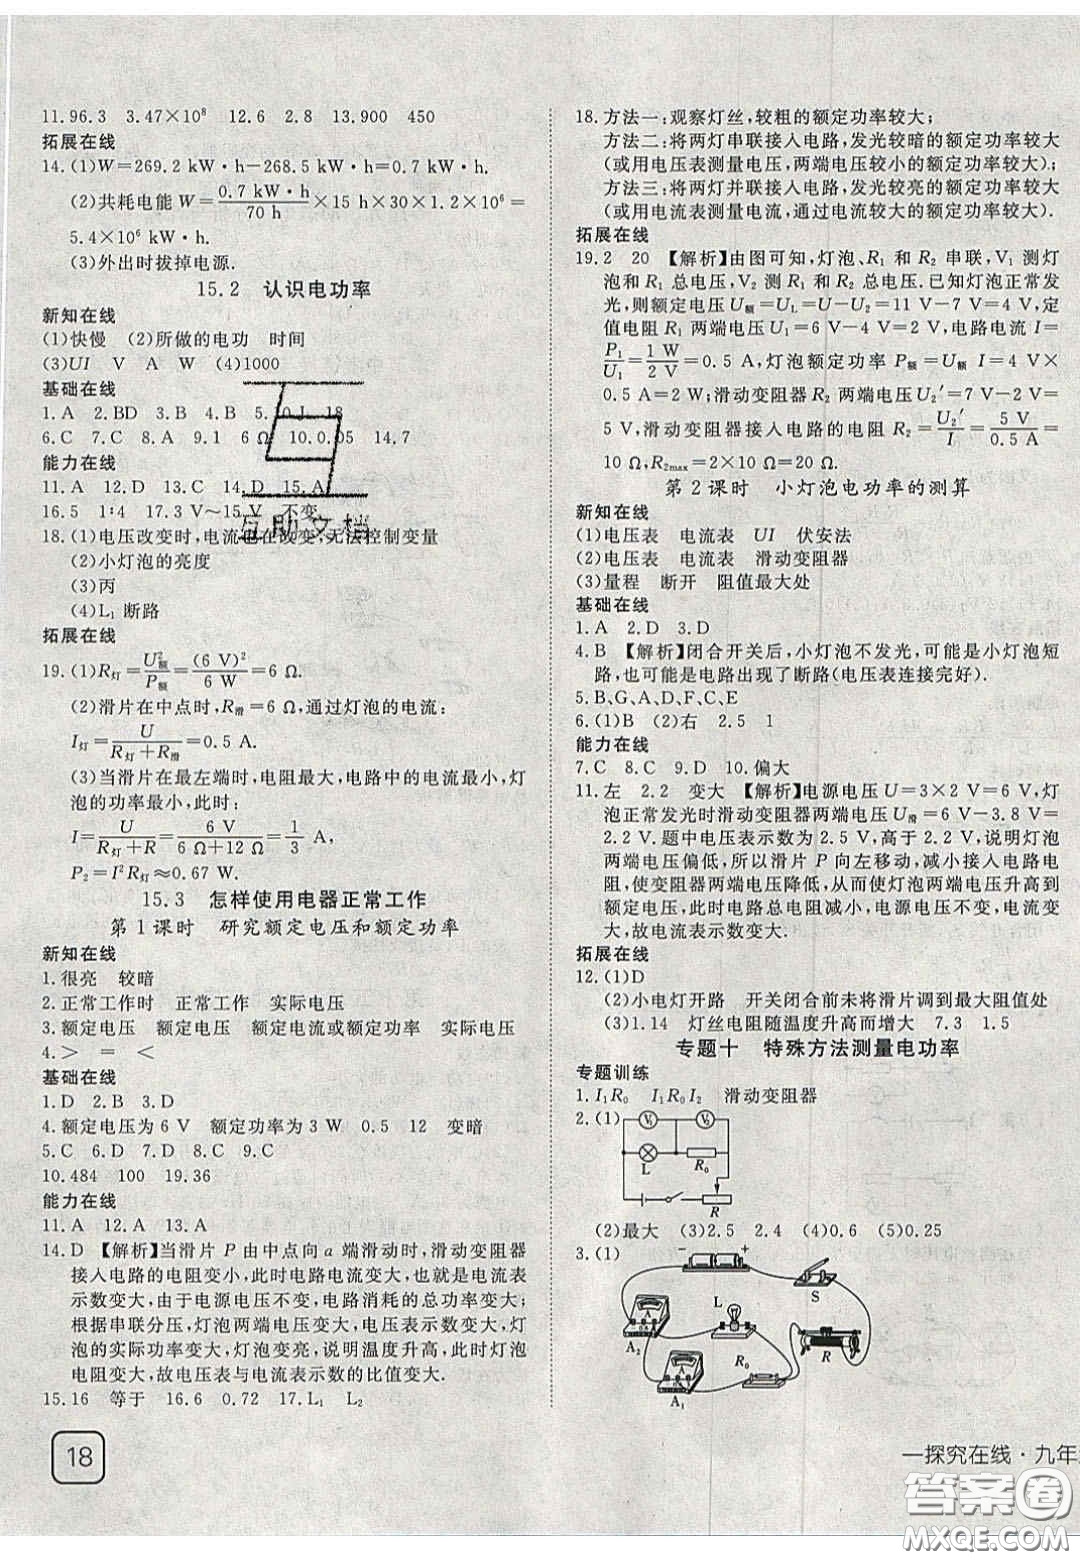 11.96.3　3.47×10⁸　12.6　2.8　13.900　450
拓展在线
14.(1)W=269.2 kW·h−268.5 kW·h=0.7 kW·h.
(2)共耗电能 W=0.7 kW·h/70 h×15 h×30×1.2×10⁶=
5.4×10⁶ kW·h.
(3)外出时拔掉电源.
15.2　认识电功率
新知在线
(1)快慢　(2)所做的电功　时间
(3)UI　V　A　W　(4)1000
基础在线
1.A　2.BD　3.B　4.B　5.10 J　18
6.C　7.C　8.A　9.1　6 Ω　10.0.05　14.7
能力在线
11.A　12.D　13.C　14.D　15.A
16.5　1∶4　17.3 V～15 V　不变
18.(1)电压改变时,电流也在改变,无法控制变量
(2)小灯泡的亮度
(3)丙
(4)L₁ 断路
拓展在线
19.(1)R灯=U额²/P额=(6 V)²/6 W=6 Ω.
(2)滑片在中点时,R滑=6 Ω,通过灯泡的电流:
I灯=U/(R灯+R滑)=0.5 A.
(3)当滑片在最左端时,电阻最大,电路中的电流最小,灯
泡的功率最小,此时:
I=U/(R灯+R)=6 V/(6 Ω+12 Ω)=1/3 A,
P₂=I²R灯≈0.67 W.
15.3　怎样使用电器正常工作
第1课时　研究额定电压和额定功率
新知在线
1.很亮　较暗
2.正常工作时　正常工作　实际电压
3.额定电压　额定电压　额定电流或额定功率　实际电压
4.＞　＝　＜
基础在线
1.D　2.B　3.D
4.额定电压为6 V　额定功率为3 W　0.5　12　变暗
5.C　6.D　7.D　8.C　9.C
10.484　100　19.36
能力在线
11.A　12.A　13.A
14.D　【解析】当滑片 P 由中点向 a 端滑动时,滑动变阻器
接入电路的电阻变小,此时电路电流变大,也就是电流表
示数变大,由于电源电压不变,电路消耗的总功率变大;
根据串联分压,灯泡两端电压变大,电压表示数变大,灯
泡的实际功率变大,灯泡变亮,说明温度升高,此时灯泡
电阻变大,故电压表与电流表示数的比值变大.
15.16　等于　16.6　0.72　17.L₁　L₂
18
18.方法一:观察灯丝,较粗的额定功率较大;
方法二:将两灯串联接入电路,发光较暗的额定功率较大
(或用电压表测量电压,两端电压较小的额定功率较大);
方法三:将两灯并联接入电路,发光较亮的额定功率较大
(或用电流表测量电流,通过电流较大的额定功率较大).
拓展在线
19.2　20　【解析】由图可知,灯泡、R₁ 和 R₂ 串联,V₁ 测灯
泡和 R₁ 总电压,V₂ 测 R₁ 和 R₂ 总电压.已知灯泡正常发
光,则额定电压 U额=UL=U−U₂=11 V−7 V=4 V,定
值电阻 R₁ 两端电压 U₁=6 V−4 V=2 V,电路电流 I=
P₁/U₁=1 W/2 V=0.5 A,灯泡额定功率 P额=U额 I=4 V×
0.5 A=2 W;滑动变阻器 R₂ 两端电压U₂′=7 V−2 V=
5 V,滑动变阻器接入电路的电阻 R₂=U₂′/I=5 V/0.5 A=
10 Ω,R2max=2×10 Ω=20 Ω.
第2课时　小灯泡电功率的测算
新知在线
(1)电压表　电流表　UI　伏安法
(2)电压表　电流表　滑动变阻器
(3)量程　断开　阻值最大处
基础在线
1.A　2.D　3.D
4.B　【解析】闭合开关后,小灯泡不发光,可能是小灯泡短
路,也可能是电路出现了断路(电压表连接完好).
5.B、G、A、D、F、C、E
6.(1)B　(2)右　2.5　1
能力在线
7.C　8.C　9.D　10.偏大
11.左　2.2　变大　【解析】电源电压 U=3×2 V=6 V,灯
泡正常发光时滑动变阻器两端电压 U滑=6 V−3.8 V=
2.2 V.题中电压表示数为 2.5 V,高于 2.2 V,说明灯泡
两端电压偏低,所以滑片 P 向左移动,减小接入电路电
阻,使变阻器两端电压降低,从而使灯泡两端电压升高到
额定电压.电路中总电阻减小,电源电压不变,电流变
大,故电流表示数变大.
拓展在线
12.(1)D
(2)小电灯开路　开关闭合前未将滑片调到最大阻值处
(3)1.14　灯丝电阻随温度升高而增大　7.3　1.5
专题十　特殊方法测量电功率
专题训练
1.I₁R₀　I₁R₀I₂　滑动变阻器
2.(1)
V₁　V₂
L　R₀
R
(2)最大　(3)2.5　2.4　(4)0.6　(5)0.25
3.(1)
−　+
S
L
A
A₂
R₀
R
A
A₁
一探究在线·九年
互助文档
答案圈
MXQE.COM